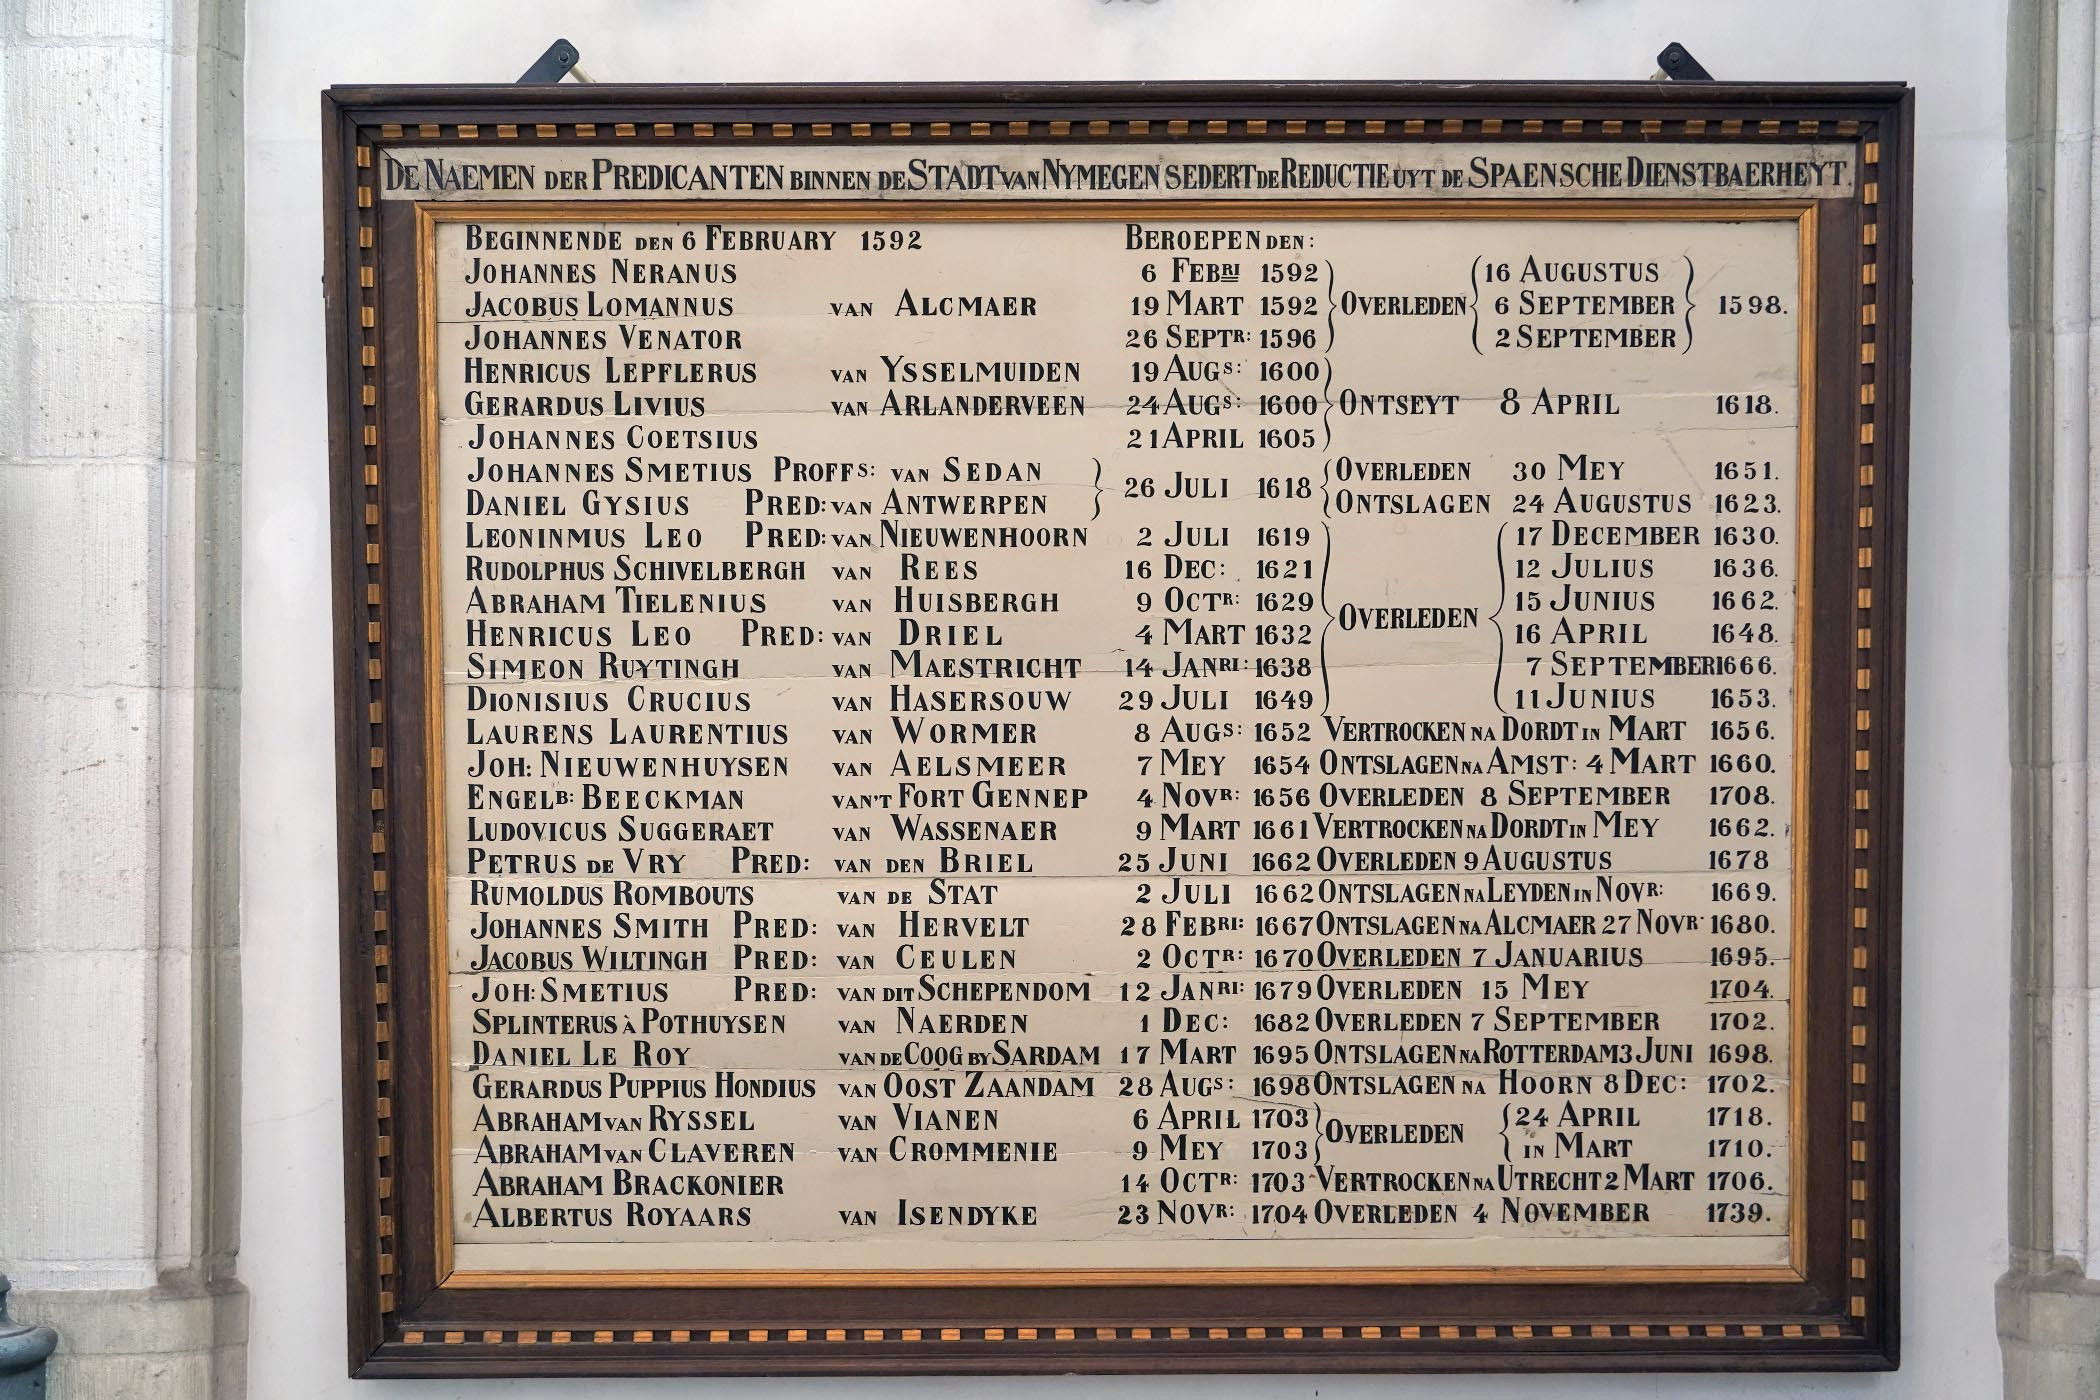 De Naemen der Predicanten binnen de Stadt van Nymegen sedert de Reductie uyt de Spaensche Dienstbaerheyt.
Beginnende den 6 February 1592 Beroepen den:
Johannes Neranus 6 Febri 1592 16 Augustus
Jacobus Lomannus van Alcmaer 19 Mart 1592 Overleden 6 September 1598.
Johannes Venator 26 Septr: 1596 2 September
Henricus Lepflerus van Ysselmuiden 19 Augs: 1600
Gerardus Livius van Arlanderveen 24 Augs: 1600 Ontseyt 8 April 1618.
Johannes Coetsius 21 April 1605
Johannes Smetius Proffs: van Sedan 26 Juli 1618 Overleden 30 Mey 1651.
Daniel Gysius Pred: van Antwerpen Ontslagen 24 Augustus 1623.
Leoninmus Leo Pred: van Nieuwenhoorn 2 Juli 1619 17 December 1630.
Rudolphus Schivelbergh van Rees 16 Dec: 1621 12 Julius 1636.
Abraham Tielenius van Huisbergh 9 Octr: 1629 Overleden 15 Junius 1662.
Henricus Leo Pred: van Driel 4 Mart 1632 16 April 1648.
Simeon Ruytingh van Maestricht 14 Janri: 1638 7 September 1666.
Dionisius Crucius van Hasersouw 29 Juli 1649 11 Junius 1653.
Laurens Laurentius van Wormer 8 Augs: 1652 Vertrocken na Dordt in Mart 1656.
Joh: Nieuwenhuysen van Aelsmeer 7 Mey 1654 Ontslagen na Amst: 4 Mart 1660.
Engelb: Beeckman van't Fort Gennep 4 Novr: 1656 Overleden 8 September 1708.
Ludovicus Suggeraet van Wassenaer 9 Mart 1661 Vertrocken na Dordt in Mey 1662.
Petrus de Vry Pred: van den Briel 25 Juni 1662 Overleden 9 Augustus 1678
Rumoldus Rombouts van de Stat 2 Juli 1662 Ontslagen na Leyden in Novr: 1669.
Johannes Smith Pred: van Hervelt 28 Febri: 1667 Ontslagen na Alcmaer 27 Novr 1680.
Jacobus Wiltingh Pred: van Ceulen 2 Octr: 1670 Overleden 7 Januarius 1695.
Joh: Smetius Pred: van dit Schependom 12 Janri: 1679 Overleden 15 Mey 1704.
Splinterus à Pothuysen van Naerden 1 Dec: 1682 Overleden 7 September 1702.
Daniel Le Roy van de Coog by Sardam 17 Mart 1695 Ontslagen na Rotterdam 3 Juni 1698.
Gerardus Puppius Hondius van Oost Zaandam 28 Augs: 1698 Ontslagen na Hoorn 8 Dec: 1702.
Abraham van Ryssel van Vianen 6 April 1703 Overleden 24 April 1718.
Abraham van Claveren van Crommenie 9 Mey 1703 in Mart 1710.
Abraham Brackonier 14 Octr: 1703 Vertrocken na Utrecht 2 Mart 1706.
Albertus Royaars van Isendyke 23 Novr: 1704 Overleden 4 November 1739.